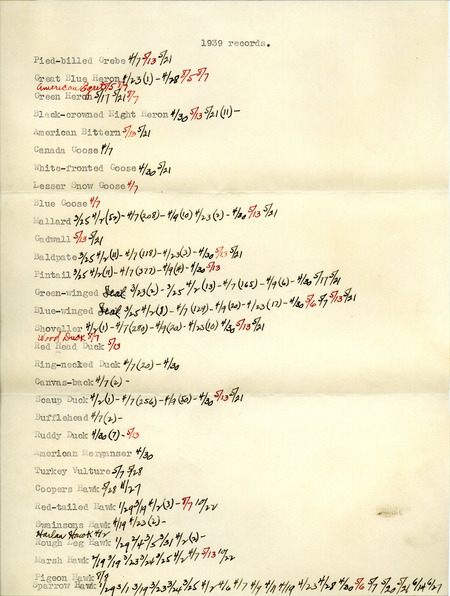 1939 records.
Pied-billed Grebe 4/7 5/13 5/21
Great Blue Heron 4/23(1) - 4/28 5/5 5/7
American Egret 5/5 5/7
Green Heron 5/17 5/21 5/7
Black-crowned Night Heron 4/30 5/13 5/21(11) -
American Bittern 5/13 5/21
Canada Goose 4/7
White-fronted Goose 4/30 5/21
Lesser Snow Goose 4/7
Blue Goose 4/7
Mallard 3/25 4/2(52) - 4/7(208) - 4/9(10) 4/23(2) - 4/30 5/13 5/21
Gadwall 5/13 5/21
Baldpate 3/25 4/2(11) - 4/7(118) - 4/23(3) - 4/30 5/13 5/21
Pintail 3/25 4/2(9) - 4/7(377) - 4/9(8) - 4/30 5/13
Green-winged Teal 3/23(2) - 3/25 4/2(13) - 4/7(165) - 4/9(6) - 4/30 5/17 5/21
Blue-winged Teal 3/25 4/2(8) - 4/7(129) - 4/9(20) - 4/23(17) - 4/30 5/6 5/7 5/13 5/21
Shoveller 4/2(1) - 4/7(280) - 4/9(20) - 4/23(10) 4/30 5/13 5/21
Wood Duck 5/7
Red Head Duck 5/13
Ring-necked Duck 4/7(20) - 4/30
Canvas-back 4/7(2) -
Scaup Duck 4/2(1) - 4/7(256) - 4/9(50) - 4/30 5/13 5/21
Bufflehead 4/7(2) -
Ruddy Duck 4/30(7) - 5/13
American Merganser 4/30
Turkey Vulture 5/7 5/28
Coopers Hawk 5/28 11/27
Red-tailed Hawk 1/29 3/19 4/2(3) - 5/7 10/22
Swainsons Hawk 4/19 4/23(2) -
Harlan Hawk 4/2
Rough Leg Hawk 1/29 3/4 3/5 3/31 4/2(2) -
Marsh Hawk 2/19 3/19 3/23 3/24 3/25 4/2 4/7 5/13 10/22
Pigeon Hawk
Sparrow Hawk 1/29 3/1 3/19 3/23 3/24 3/25 4/2 4/6 4/7 4/9 4/11 4/19 4/23 4/28 4/30 5/6 5/7 5/20 5/21 6/14 6/27